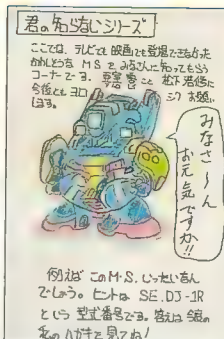 君の知らないシリーズ
ここでは、テレビでも映画でも登場できなかった
かわいそうな MS をみなさんに知ってもらう
コーナーです。
今後ともヨロシク お願い
します。
みなさ〜ん
お元気ですか!!
例えば このM.S. いったいなん
でしょう。ヒントは SE.DJ-1R
という 型式番号です。答えは
私の ハガキを見てね!